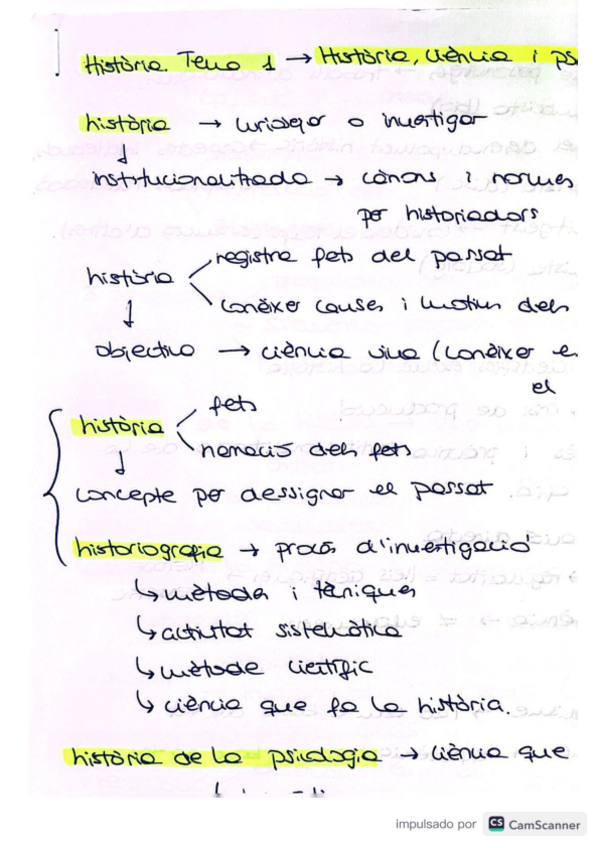 Història Tema 1 → Història, ciència i ps
història → curiosejar o investigar
↓
institucionalitzada → cànons i normes
per historiadors
història registra fets del passat
↓ conèixer causes i motius dels
objectiva → ciència viva (conèixer e
el
història fets
↓ narració dels fets
concepte per dessignar el passat
historiografia → procés d'investigació
↳ mètodes i tècniques
↳ activitat sistemàtica
↳ mètode científic
↳ ciència que fa la història.
història de la psicologia → ciència que
impulsado por CS CamScanner